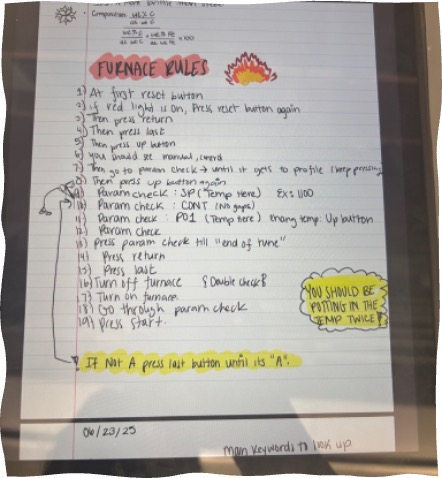 • Comparison: wt % C
at wt C
wt % C + wt % Fe × 100
at wt C at wt Fe
FURNACE RULES
1) At first reset button
2) if red light is on, Press reset button again
3) Then press return
4) Then press last
5) Then press up button
6) you should see manual,
7) Then go to param check → until it gets to profile (keep pressing)
8) Then press up button again
9) Param check : SP (Temp Here) Ex: 1100
10) Param check : CONT (No gaps)
11) Param check : PO1 (Temp Here) Chang temp: Up button
12) Param check
13) Press param check till "end of tune"
14) Press return
15) Press last
16) Turn off furnace {Double check}
17) Turn on furnace
18) Go through param check
19) Press start.
YOU SHOULD BE
PUTTING IN THE
TEMP TWICE!
If Not A press last button until its "A".
06/23/25
main keywords to look up